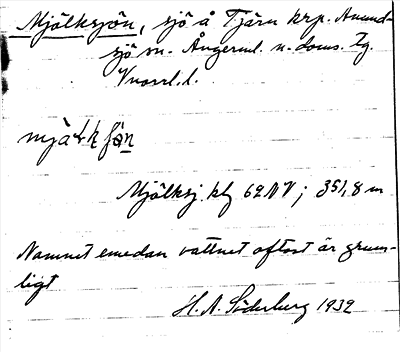 Mjölksjön, sjö å Tjärn krp. Anund-
sjö sn. Ångerml. n. doms. tg.
Vnorrl. l.
Mjölksj. kbl 62 NV; 351,8 m
Namnet emedan vattnet oftast är grum-
ligt
H. A. Söderberg 1932